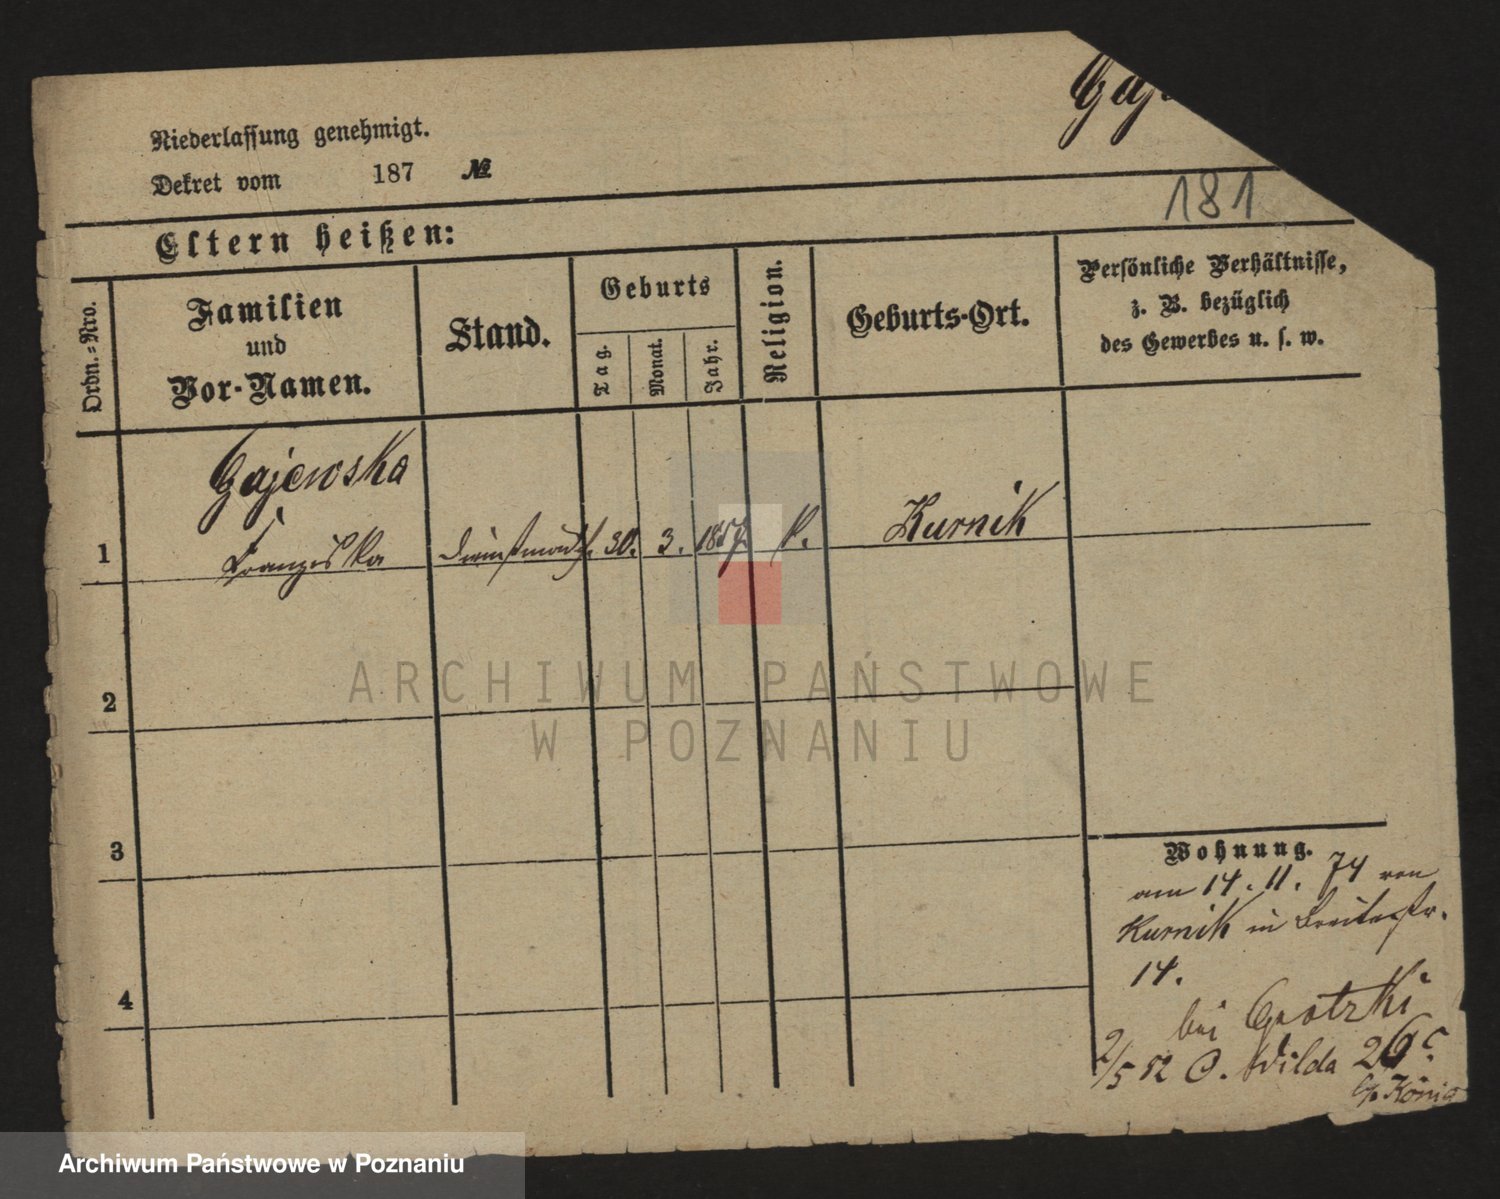 Gaj
Niederlassung genehmigt.
Dekret vom 187 №
181
Eltern heißen:
Ordn.=Nro.
Familien
und
Vor-Namen.
Stand.
Geburts
Tag.
Monat.
Jahr.
Religion.
Geburts-Ort.
Persönliche Verhältnisse,
z. B. bezüglich
des Gewerbes u. s. w.
Gajewska
1 Franziska 30. 3. 1857 k. Kurnik
2
3
4
Wohnung.
am 14. 11. 74 von
Kurnik in Breitestr.
14.
bei
2/5 O. Wilda 26
König
ARCHIWUM PAŃSTWOWE
W POZNANIU
Archiwum Państwowe w Poznaniu